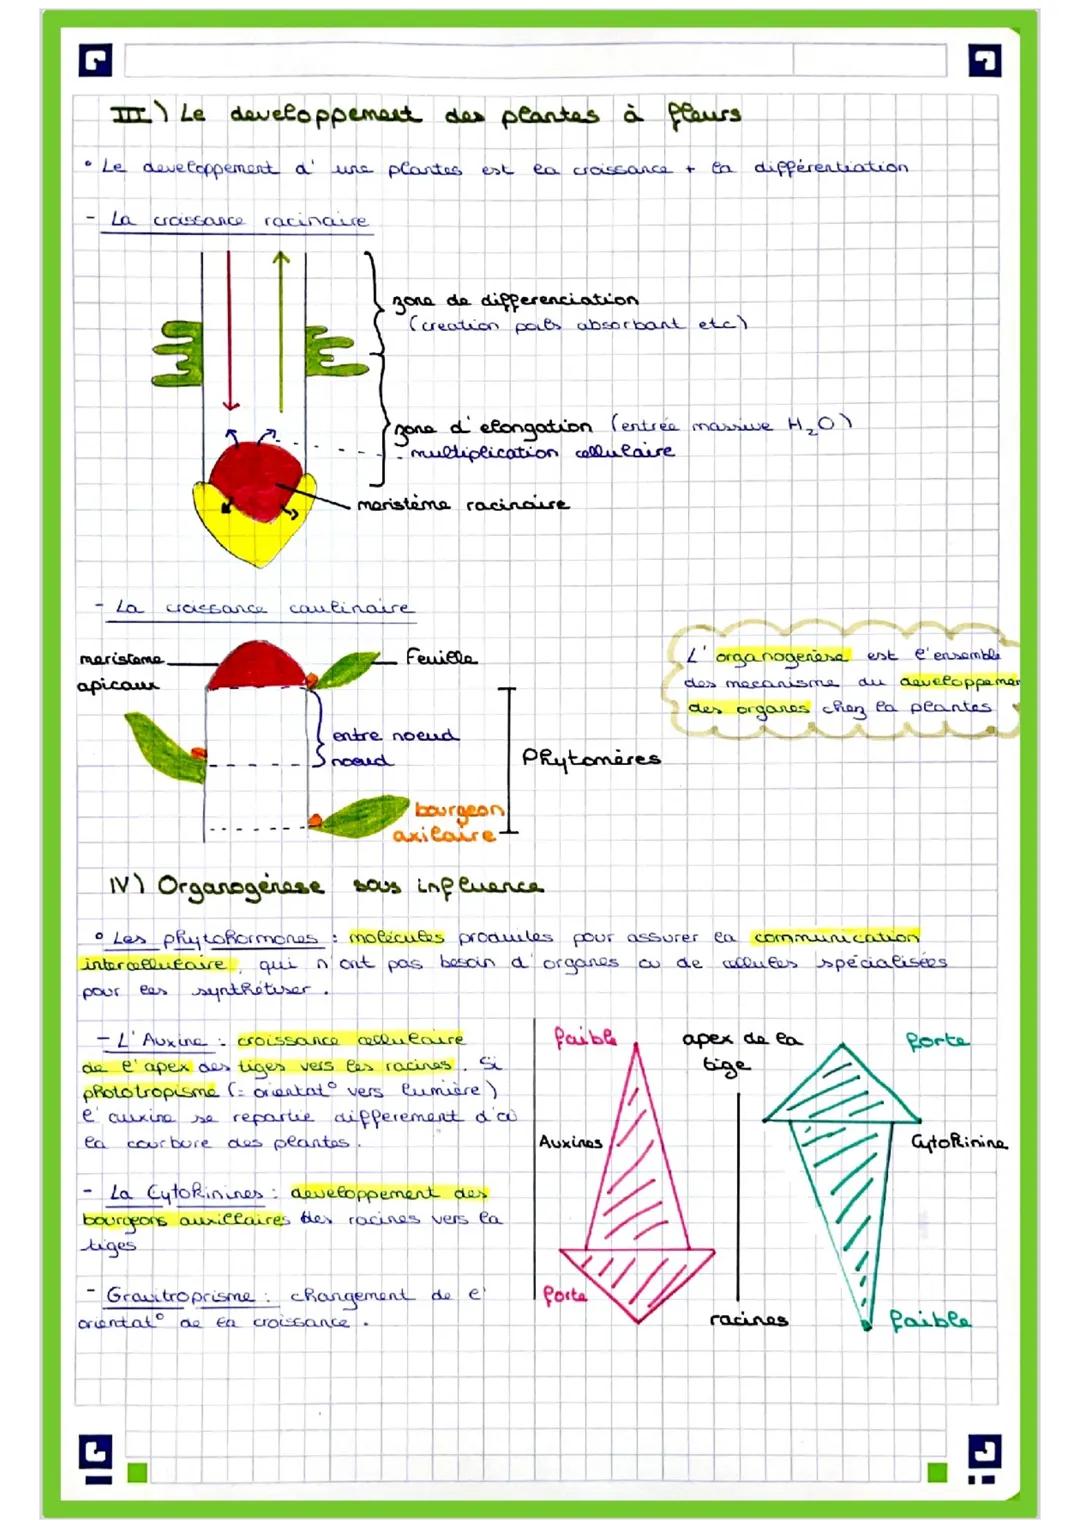 III) Le developpement des plantes à fleurs
° Le developpement d' une plantes est la croissance + la différentiation
- La croissance racinaire
zone de differenciation
(creation poils absorbant etc)
zone d' elongation (entrée massive H₂O)
- multiplication cellulaire
meristème racinaire
- La croissance caulinaire
meristeme
apicaux
Feuille
entre noeud
noeud
Phytomères
bourgeon
axilaire
L' organogenèse est l'ensemble
des mecanisme du developpemen
des organes chez la plantes
IV) Organogénèse sous influence
° Les phytohormones : molécules produites pour assurer la communication
intercellulaire, qui n'ont pas besoin d' organes ou de cellules spécialisées
pour les synthétiser.
- L' Auxine : croissance cellulaire
de l' apex des tiges vers les racines. Si
phototropisme (= orientat° vers lumière)
l' auxine se repartie differement d'où
la courbure des plantes.
- La Cytokinines : developpement des
bourgeons auxillaires des racines vers la
tiges
- Gravitroprisme : changement de l'
orientat° de la croissance.
faible
Auxines
forte
apex de la
tige
racines
forte
Cytokinine
faible